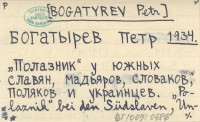 [BOGATYREV Petr]
БОГАТЫРЕВ ПЕТР 1934.
„Полазник" у южных
славян, мадьяров, словаков,
поляков и украинцев. „Po-
laznik" bei den Südslaven, Un-